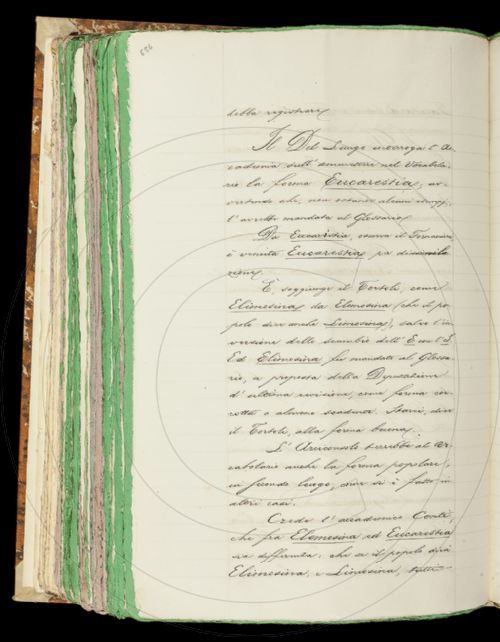 686
debba registrare.
Il Del Lungo interroga l'Ac-
cademia sull'ammettere nel Vocabola-
rio la forma Eucarestia, av-
vertendo che, non ostante alcuni esempj,
l'avrebbe mandata al Glossario.
Da Eucaristia, osserva il
è venuta Eucarestia per dissimila
zione.
E soggiunge il Tortoli, come
Elimosina da Elemosina (che il po-
polo dice anche Limosina), salvo l'in-
versione dello scambio dell'E con l'I.
Ed Elimosina, fu mandata al Glossa-
rio, a proposta della Deputazione
d'ultima revisione, come forma cor-
rotta o almeno scaduta. Starei, dice
il Tortoli, alla forma buona.
L'Arciconsolo terrebbe al Vo-
cabolario anche la forma popolare,
in secondo luogo, come si è fatto in
altri casi.
Crede l'accademico Conti,
che fra Elemosina ed Eucarestia
sia differenza: che se il popolo dice
Elimosina, e Limosina,